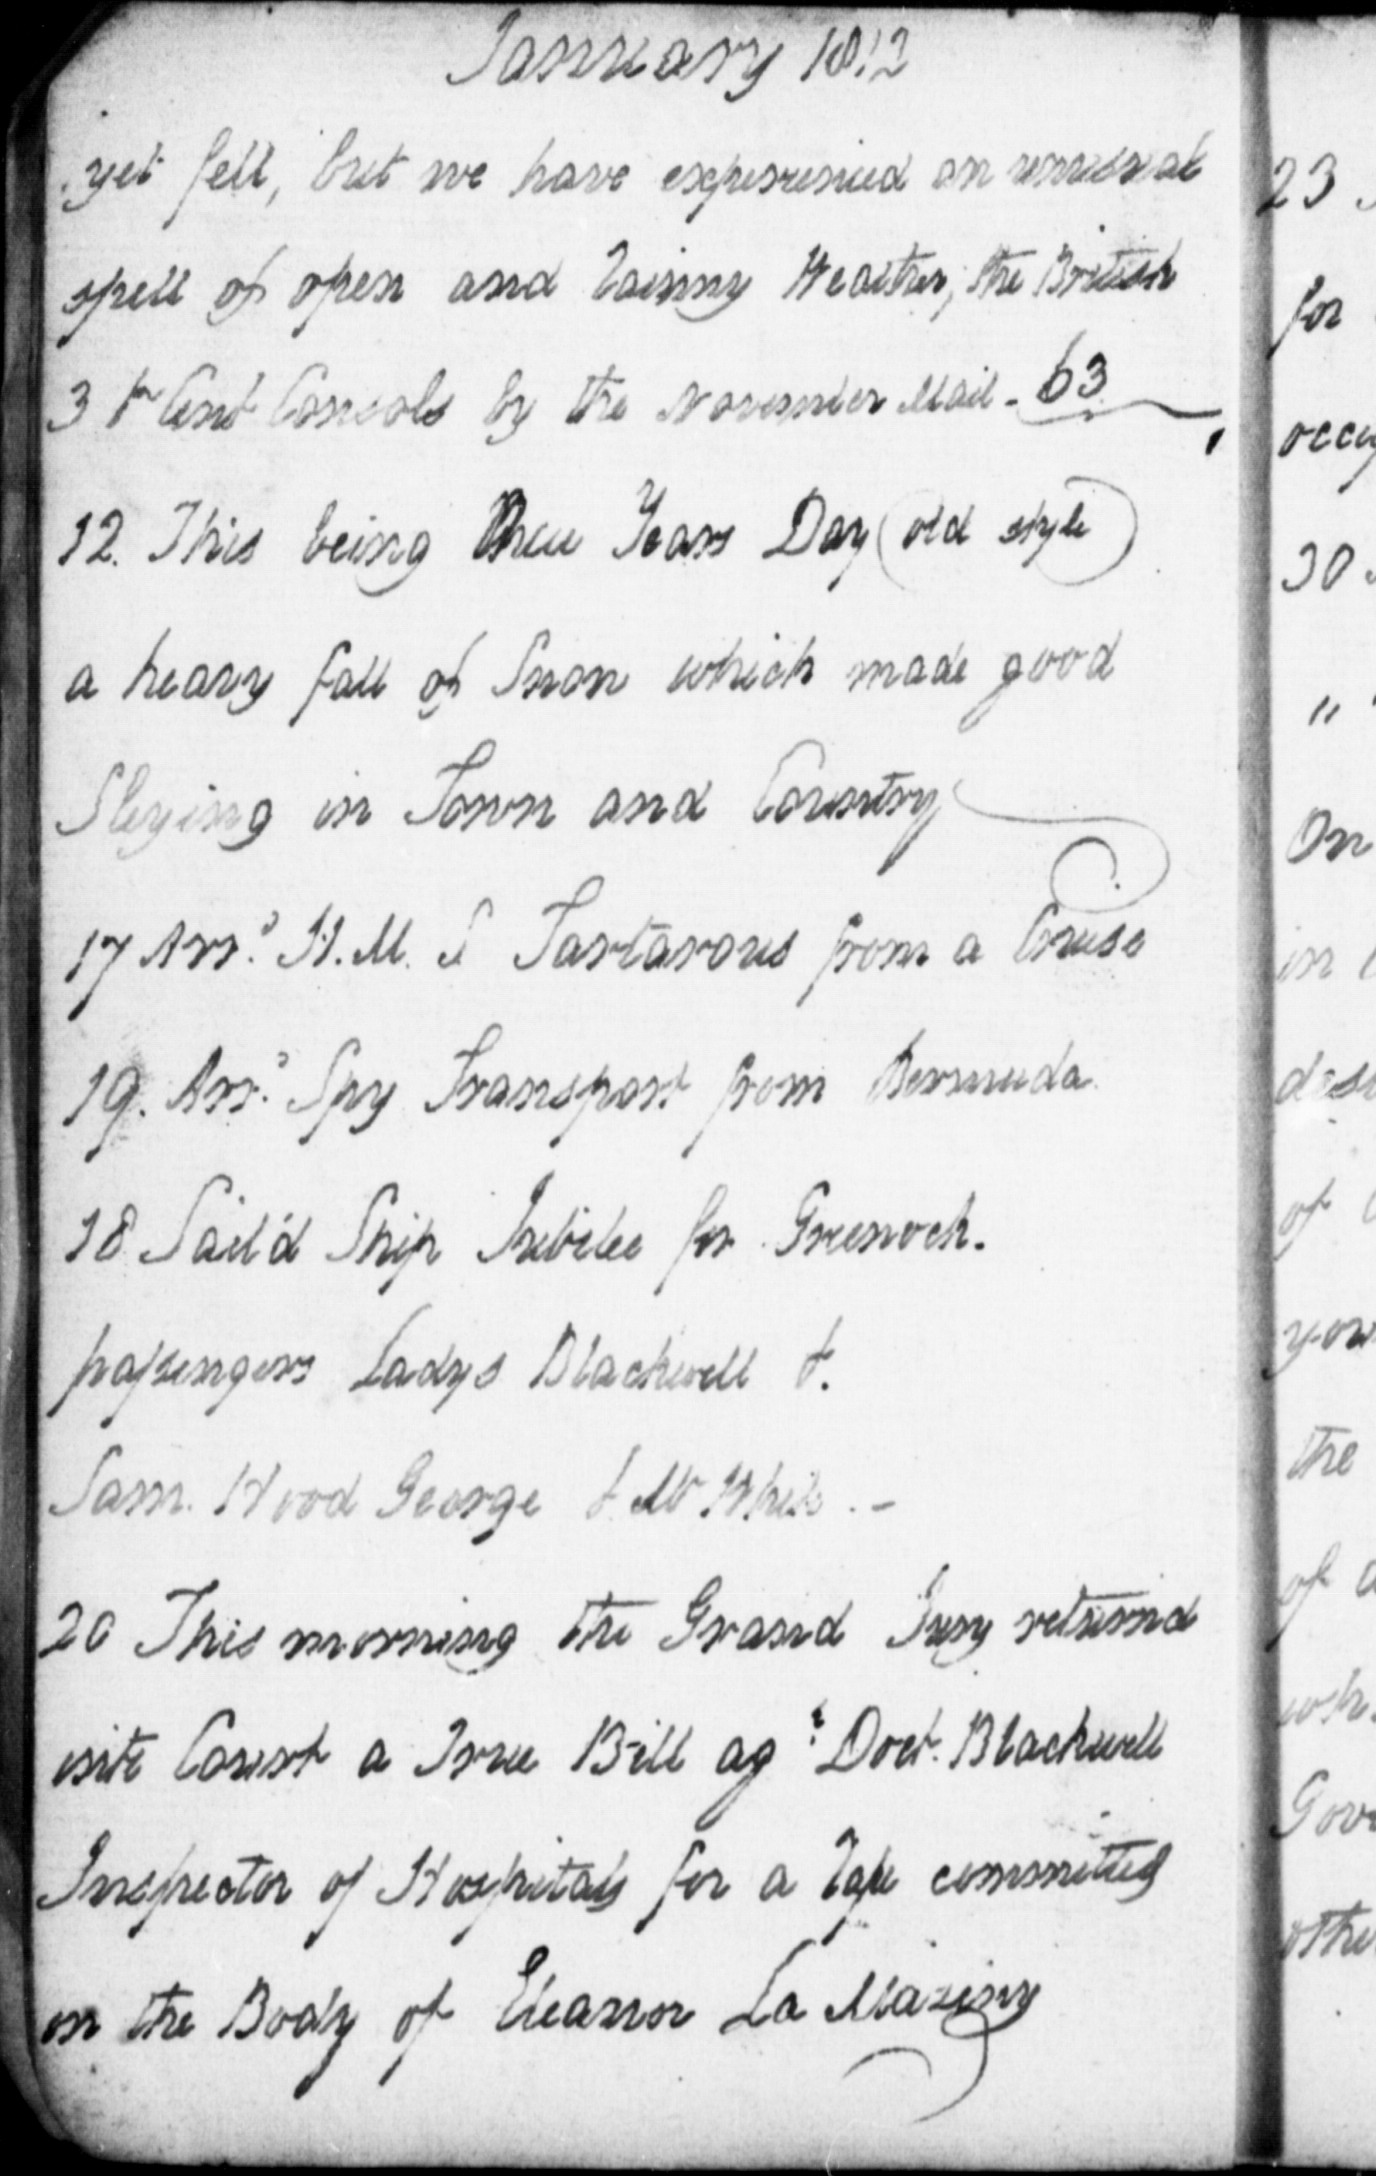 January 1812
yet fell, but we have experienced an unusual
spell of open and Rainny Weather, the British
3 Pr Cent Consols by the November Mail - 63
12. This being New Years Day (old style)
a heavy fall of Snow which made good
Sleying in Town and Country
17 Arrd. H.M. S Tartarous from a Cruse
19. Arrd. Spy Transport from Bermuda
18 Sail'd Ship Jubilee for Greenock.
passengers Ladys Blackwell &.
Sam. Hood George & Mr White. -
20 This morning the Grand Jury returnd
into Court a True Bill agt. Doct. Blackwell
Inspector of Hospitals for a Rape committed
on the Body of Eleanor La
23
for
30
"
On
in
of
the
of